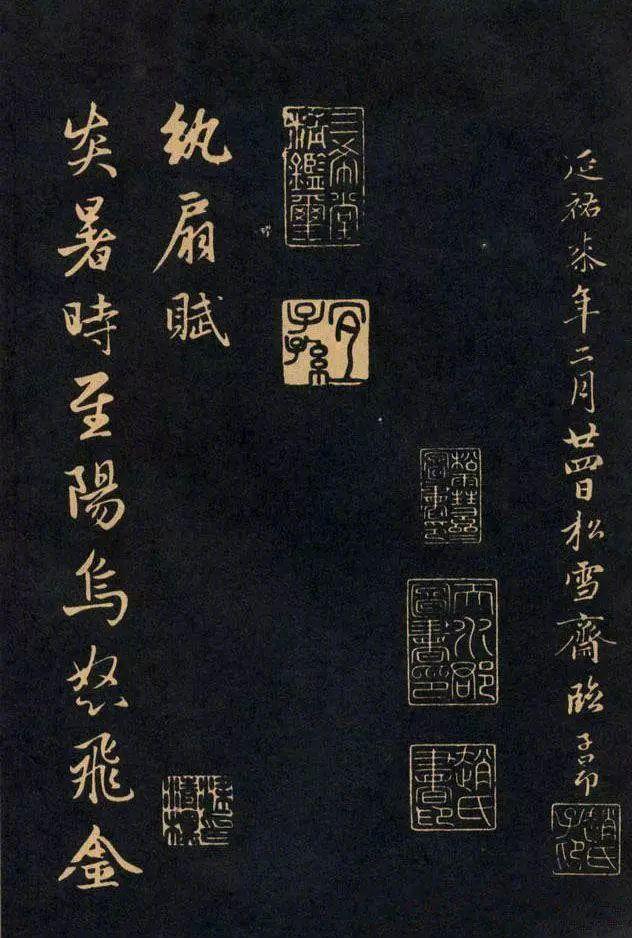 延祐柒年二月廿四日松雪齋臨 子昂
趙氏子昂
松雪齋圖書印
天水郡圖書印
趙氏書印
三希堂精鑑璽
宜子孫
紈扇賦
炎暑時至陽烏怒飛金